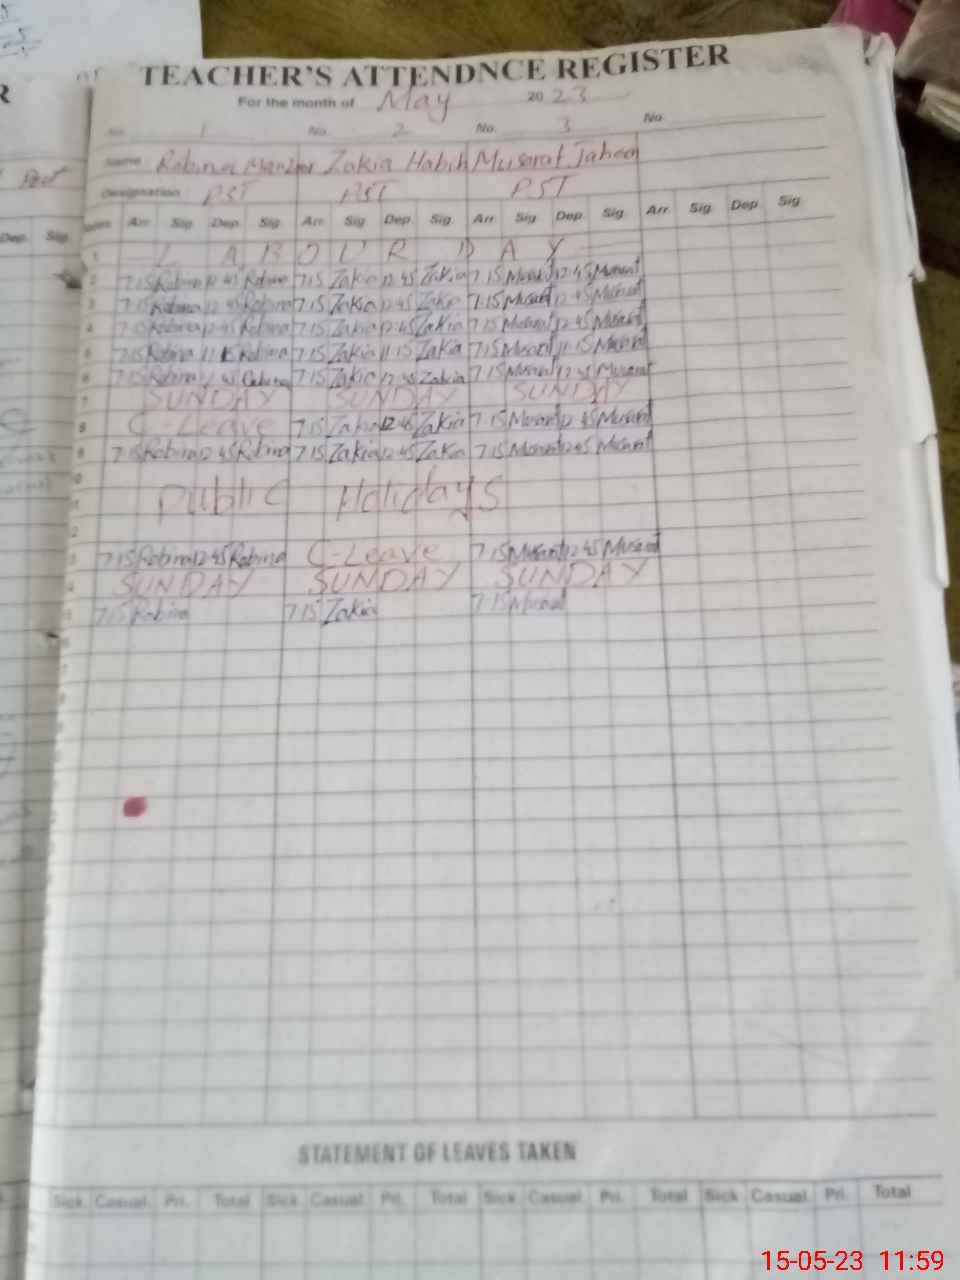 TEACHER'S ATTENDNCE REGISTER
For the month of May 2023
No. 1 No. 2 No. 3 No.
Name Robina Manzoor Zakia Habib Musarat Jabeen
Designation PST PST PST
Dates Arr. Sig. Dep. Sig. Arr. Sig. Dep. Sig. Arr. Sig. Dep. Sig. Arr. Sig. Dep. Sig.
1 LABOUR DAY
2 7:15 Robina 12:45 Robina 7:15 Zakia 12:45 Zakia 7:15 Musarat 12:45 Musarat
3 7:15 Robina 12:45 Robina 7:15 Zakia 12:45 Zakia 7:15 Musarat 12:45 Musarat
4 7:15 Robina 12:45 Robina 7:15 Zakia 12:45 Zakia 7:15 Musarat 12:45 Musarat
5 7:15 Robina 11:15 Robina 7:15 Zakia 11:15 Zakia 7:15 Musarat 11:15 Musarat
6 7:15 Robina 12:45 Robina 7:15 Zakia 12:45 Zakia 7:15 Musarat 12:45 Musarat
7 SUNDAY SUNDAY SUNDAY
8 C-Leave 7:15 Zakia 12:45 Zakia 7:15 Musarat 12:45 Musarat
9 7:15 Robina 12:45 Robina 7:15 Zakia 12:45 Zakia 7:15 Musarat 12:45 Musarat
10
11 Public Holidays
12
13 7:15 Robina 12:45 Robina C-Leave 7:15 Musarat 12:45 Musarat
14 SUNDAY SUNDAY SUNDAY
15 7:15 Robina 7:15 Zakia 7:15 Musarat
STATEMENT OF LEAVES TAKEN
Sick Casual Pri. Total Sick Casual Pri. Total Sick Casual Pri. Total Sick Casual Pri. Total
15-05-23 11:59